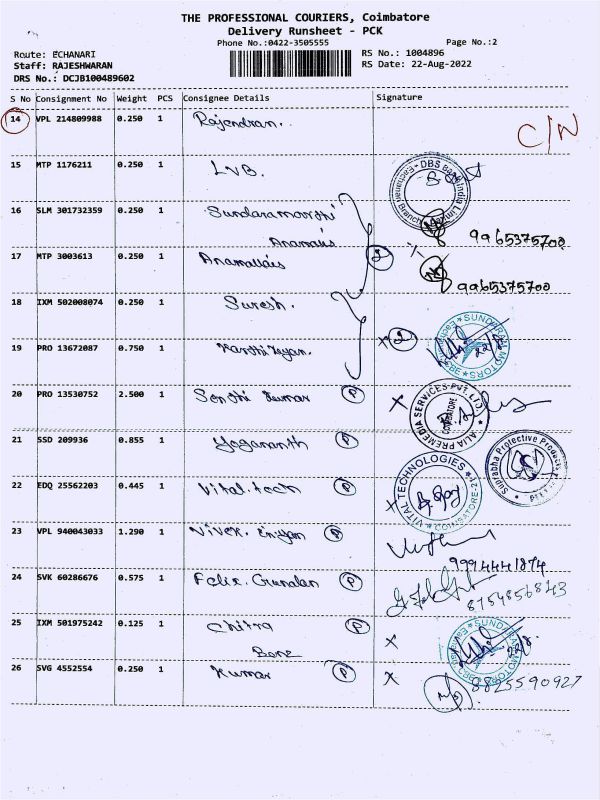 THE PROFESSIONAL COURIERS, Coimbatore
Delivery Runsheet - PCK
Phone No.:0422-3505555
Page No.:2
Route: ECHANARI
RS No.: 1004896
Staff: RAJESHWARAN
RS Date: 22-Aug-2022
DRS No.: DCJB100489602
S No Consignment No Weight PCS Consignee Details Signature
14 VPL 214809988 0.250 1 Rajendran. C/N
15 MTP 1176211 0.250 1 LVB. DBS Bank India
16 SLM 301732359 0.250 1 Sundaramoorthi
9965375700
17 MTP 3003613 0.250 1 Anamallais 2
9965375700
18 IXM 502008074 0.250 1 Suresh. SUNDARAM MOTORS
19 PRO 13672087 0.750 1 x 2
20 PRO 13530752 2.500 1 Senthi Kumar P x ALIA PREMEDIA SERVICES PVT. LTD. COIMBATORE
21 SSD 209936 0.855 1 Yogananth P Suprabha Protective Products
22 EDQ 25562203 0.445 1 Vital.tech P x VITAL TECHNOLOGIES COIMBATORE-21
23 VPL 940043033 1.290 1 P
9994441874
24 SVK 60286676 0.575 1 Felix. P
8754856843
25 IXM 501975242 0.125 1 Chitra P x SUNDARAM MOTORS
26 SVG 4552554 0.250 1 Kumar P x 8825590927